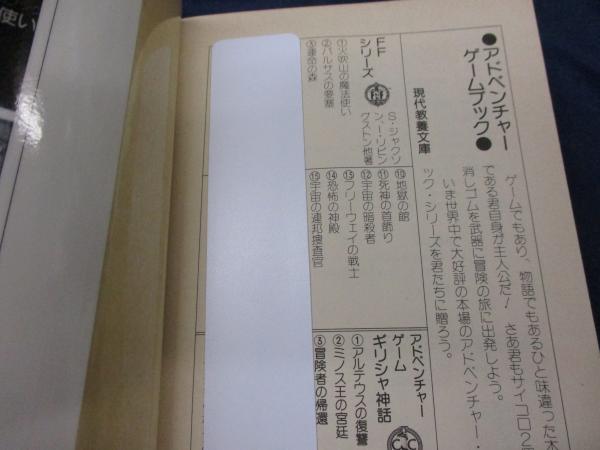 使い
●アドベンチャー
ゲームブック●
現代教養文庫
ゲームでもあり、物語でもあるひと味違った本
である君自身が主人公だ！ さあ君もサイコロ2
消しゴムを武器に冒険の旅に出発しよう。
いま世界中で大好評の本場のアドベンチャー・
ック・シリーズを君たちに贈ろう。
FF
シリーズ
S・ジャクソ
ン、I・リビン
グストン他著
①火吹山の魔法使い
②バルサスの要塞
③運命の森
⑩地獄の館
⑪死神の首飾り
⑫宇宙の暗殺者
⑬フリーウェイの戦士
⑭恐怖の神殿
⑮宇宙の連邦捜査官
アドベンチャー
ゲーム
ギリシャ神話
①アルテウスの復讐
②ミノス王の宮廷
③冒険者の帰還